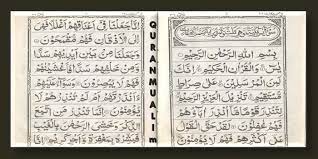 بِسْمِ اللهِ الرَّحْمٰنِ الرَّحِيْمِ
يٰسٓ وَالْقُرْاٰنِ الْحَكِيْمِ اِنَّكَ
لَمِنَ الْمُرْسَلِيْنَ عَلٰى صِرَاطٍ
مُّسْتَقِيْمٍ تَنْزِيْلَ الْعَزِيْزِ الرَّحِيْمِ
لِتُنْذِرَ قَوْمًا مَّآ اُنْذِرَ اٰبَآؤُهُمْ
فَهُمْ غٰفِلُوْنَ لَقَدْ حَقَّ الْقَوْلُ
عَلٰٓى اَكْثَرِهِمْ فَهُمْ لَا يُؤْمِنُوْنَ
QURANMUALIM
اِنَّا جَعَلْنَا فِيْٓ اَعْنَاقِهِمْ اَغْلٰلًا فَهِيَ
اِلَى الْاَذْقَانِ فَهُمْ مُّقْمَحُوْنَ
وَجَعَلْنَا مِنْۢ بَيْنِ اَيْدِيْهِمْ سَدًّا
وَّمِنْ خَلْفِهِمْ سَدًّا فَاَغْشَيْنٰهُمْ
فَهُمْ لَا يُبْصِرُوْنَ وَسَوَآءٌ عَلَيْهِمْ
ءَاَنْذَرْتَهُمْ اَمْ لَمْ تُنْذِرْهُمْ لَا
يُؤْمِنُوْنَ اِنَّمَا تُنْذِرُ مَنِ اتَّبَعَ
الذِّكْرَ وَخَشِيَ الرَّحْمٰنَ بِالْغَيْبِ
فَبَشِّرْهُ بِمَغْفِرَةٍ وَّاَجْرٍ كَرِيْمٍ